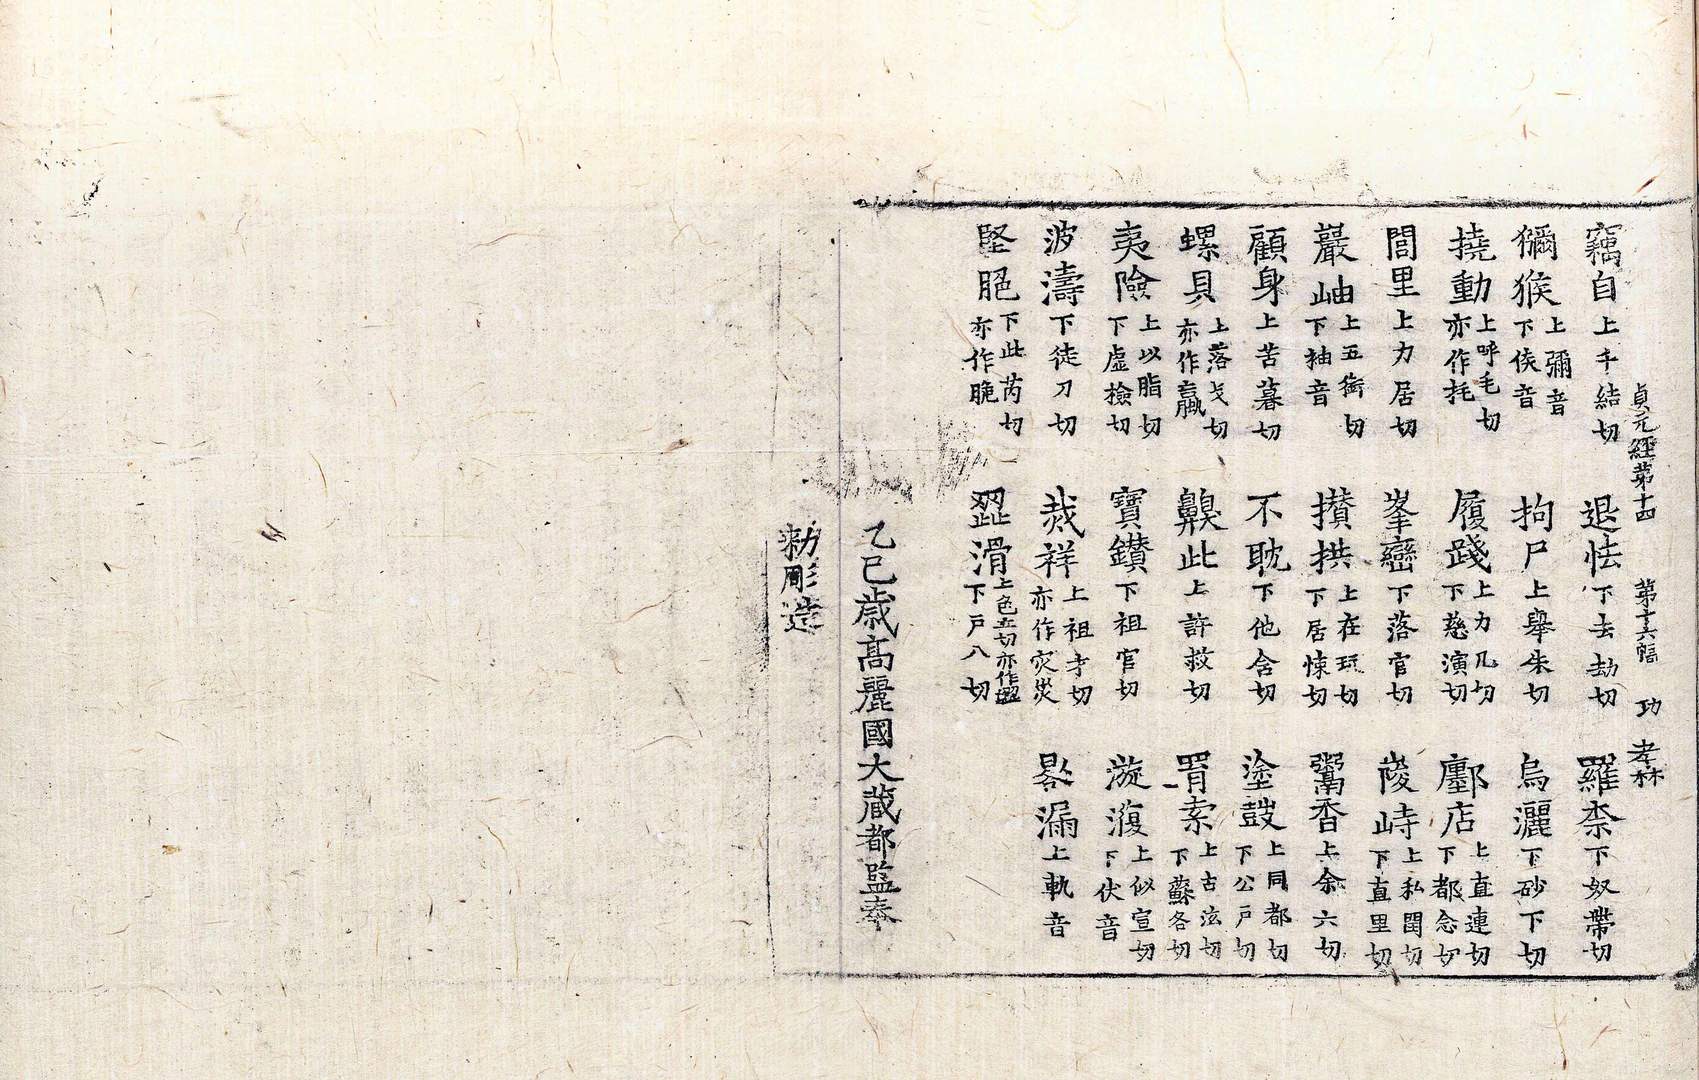 貞元經第十四　第十六幅　功　孝林
竊自上千結切　退怯下去劫切　羅柰下奴帶切
獼猴上彌音下侯音　拘尸上舉朱切　烏灑下砂下切
撓動上呼毛切亦作托　履踐上力几切下慈演切　鄽店上直連切下都念切
閭里上力居切　峯巒下落官切　崚峙上私閏切下直里切
巖岫上五銜切下袖音　攅拱上在玩切下居悚切　鬻香上余六切
顧身上苦暮切　不耽下他含切　塗鼓上同都切下公戶切
螺貝上落戈切亦作蠃　鼽此上許救切　罥索上古泫切下蘇各切
夷險上以脂切下虛檢切　寶鑽下祖官切　漩澓上似宣切下伏音
波濤下徒刀切　烖祥上祖才切亦作灾災　晷漏上軌音
堅脃下此芮切亦作脆　澀滑上色立切亦作澁下戶八切
乙巳歲高麗國大藏都監奉
勅彫造